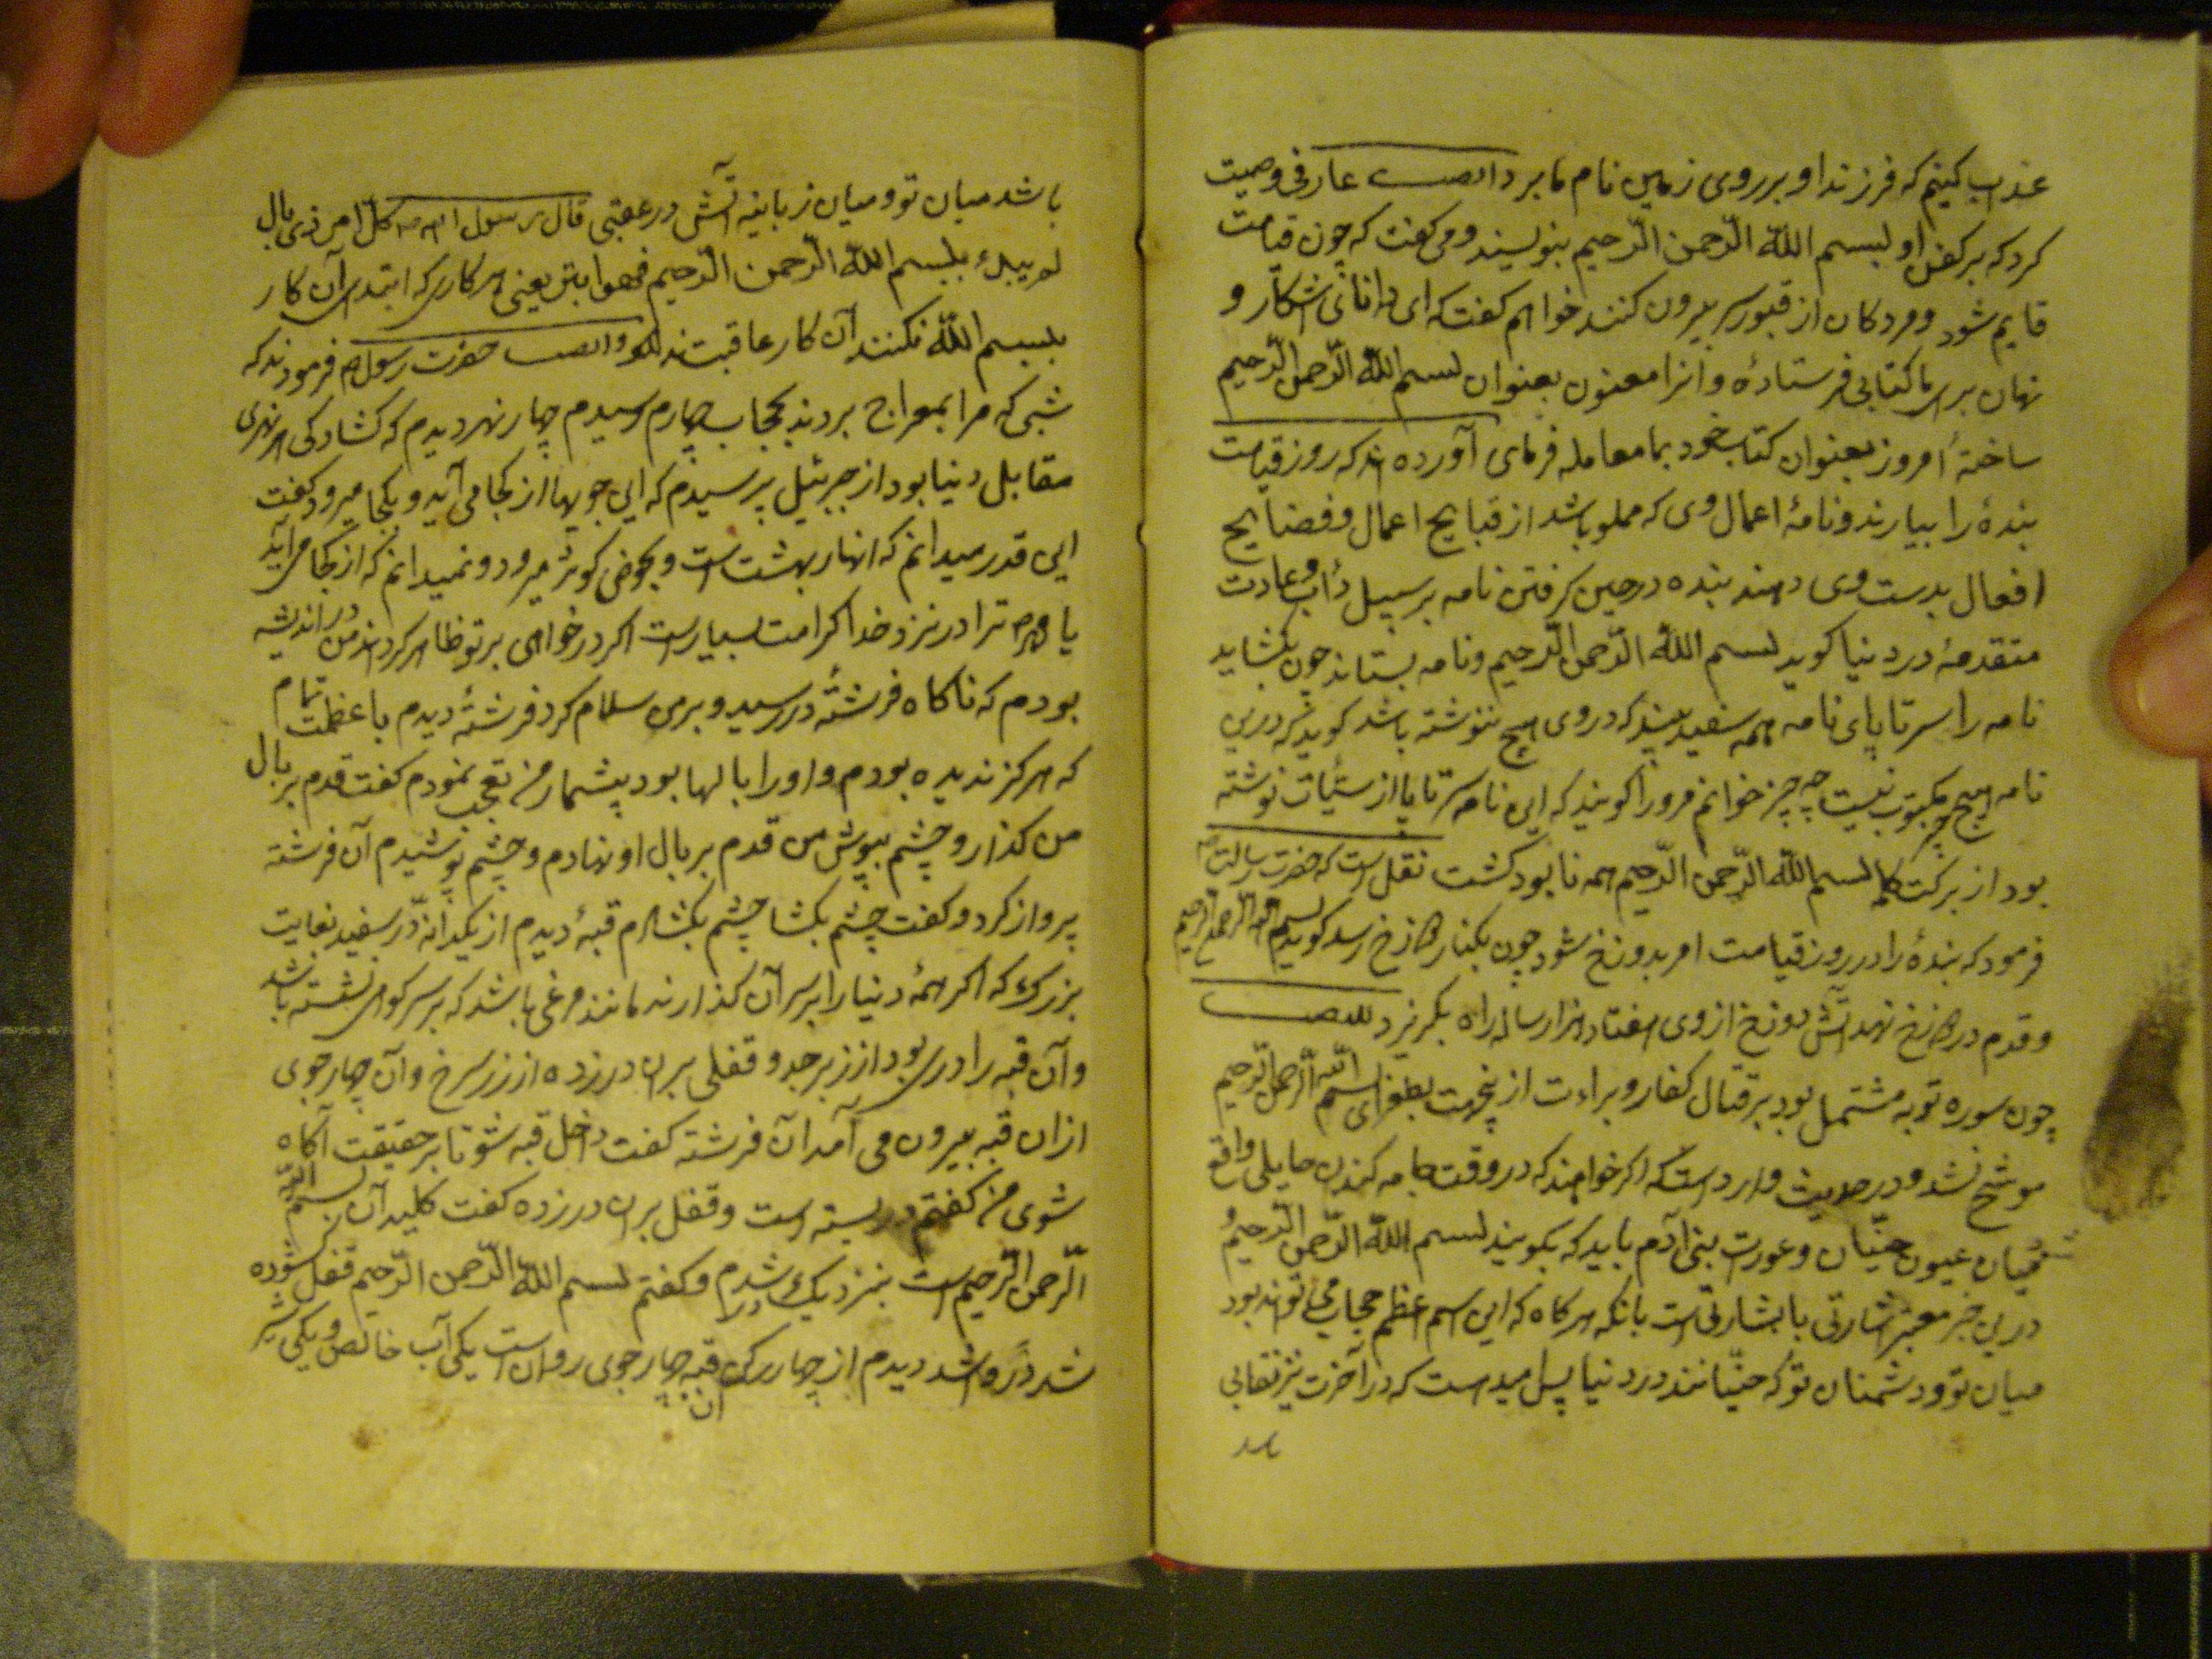 عذاب کنیم که فرزند او بر روی زمین نام ما برد ایضا عارفی وصیت
کرد که بر کفن او بسم الله الرحمن الرحیم بنویسند و می کفت که چون قیامت
قایم شود و مردکان از قبور سر بیرون کنند خواهم کفت که ای دانای اشکار و
نهان بر ما کتابی فرستادهٔ و انرا معنون بعنوان بسم الله الرحمن الرحیم
ساختهٔ امروز بعنوان کتاب خود بما معامله فرمای آورده اند که روز قیامت
بندهٔ را بیارند و نامهٔ اعمال وی که مملو باشد از قبایح اعمال و فضایح
افعال بدست وی دهند بنده در حین کرفتن نامه بر سبیل دأب و عادت
متقدمهٔ در دنیا کوید بسم الله الرحمن الرحیم و نامه بستاند چون بکشاید
نامه را سر تا پای نامه همه سفید بیند که در وی هیچ ننوشته باشد کوید که درین
نامه هیچ مکتوب نیست چه چیز خوانم مرورا کویند که این نامه سر تا پا از سیّئات نوشته
بود از برکت کلمه بسم الله الرحمن الرحیم همه نابود کشت نقل است که حضرت رسالت ص
فرمود که بندهٔ را در روز قیامت امر بدوزخ شود چون بکنار دوزخ رسد کوید بسم الله الرحمن الرحیم
و قدم در دوزخ نهد آتش دوزخ از وی هفتاد هزار ساله راه بکریزد
چون سوره توبه مشتمل بود بر قتال کفار و براءت از ینجهت بطغرای بسم الله الرحمن الرحیم
موشح نشد و در حدیث وارد است که اکر خواهند که در وقت جامه کندن حایلی واقع
شود میان عیون جنّیان و عورت بنی آدم باید که بکویند بسم الله الرحمن الرحیم
درین خبر معتبر اشارتی با بشارتی است بانکه هرکاه که این اسم اعظم حجاب می تواند بود
میان تو و دشمنان تو که جنّیانند در دنیا پس امید است که در آخرت نیز نقابی
باشد
باشد میان تو و میان زبانیه آتش در عقبی قال رسول الله ص کل امر ذی بال
لم یبدء ببسم الله الرحمن الرحیم فهو ابتر یعنی هر کاری که ابتدای آن کار
ببسم الله نکنند آن کار عاقبت ندارد ایضا حضرت رسول ص فرمودند که
شبی که مرا بمعراج بردند بحجاب چهارم رسیدم چهار نهر دیدم که کشادکی هر نهری
مقابل دنیا بود از جبرئیل پرسیدم که این جویها از کجا می آید و بکجا میرود کفت
این قدر میدانم که انهار بهشت است و بحوض کوثر میرود و نمیدانم که از کجا می آید
یا محمد ص ترا در نزد خدا کرامت بسیار است اکر درخواهی بر تو ظاهر کرداند من در اندیشه
بودم که ناکاه فرشتهٔ در رسید و بر من سلام کرد فرشتهٔ دیدم با عظمت تمام
که هرکز ندیده بودم و او را بالها بود بیشمار من تعجب نمودم کفت قدم بر بال
من کذار و چشم بپوش من قدم بر بال او نهادم و چشم پوشیدم آن فرشته
پرواز کرد و کفت چشم بکشا چشم بکشادم قبهٔ دیدم از یکدانه درّ سفید بغایت
بزرک که اکر همهٔ دنیا را بر سر آن کذارند مانند مرغی باشد که بر سر کوهی نشسته باشد
و آن قبه را دری بود از زبرجد و قفلی بران در زده از زر سرخ و آن چهار جوی
ازان قبه بیرون می آمد آن فرشته کفت داخل قبه شو تا بر حقیقت آکاه
شوی من کفتم در بسته است و قفل بران در زده کفت کلید آن بسم الله
الرحمن الرحیم است بنزدیک در شدم و کفتم بسم الله الرحمن الرحیم قفل کشوده
شد در وا شد دیدم از چهار رکن آن قبه چهار جوی روان است یکی آب خالص و یکی شیر